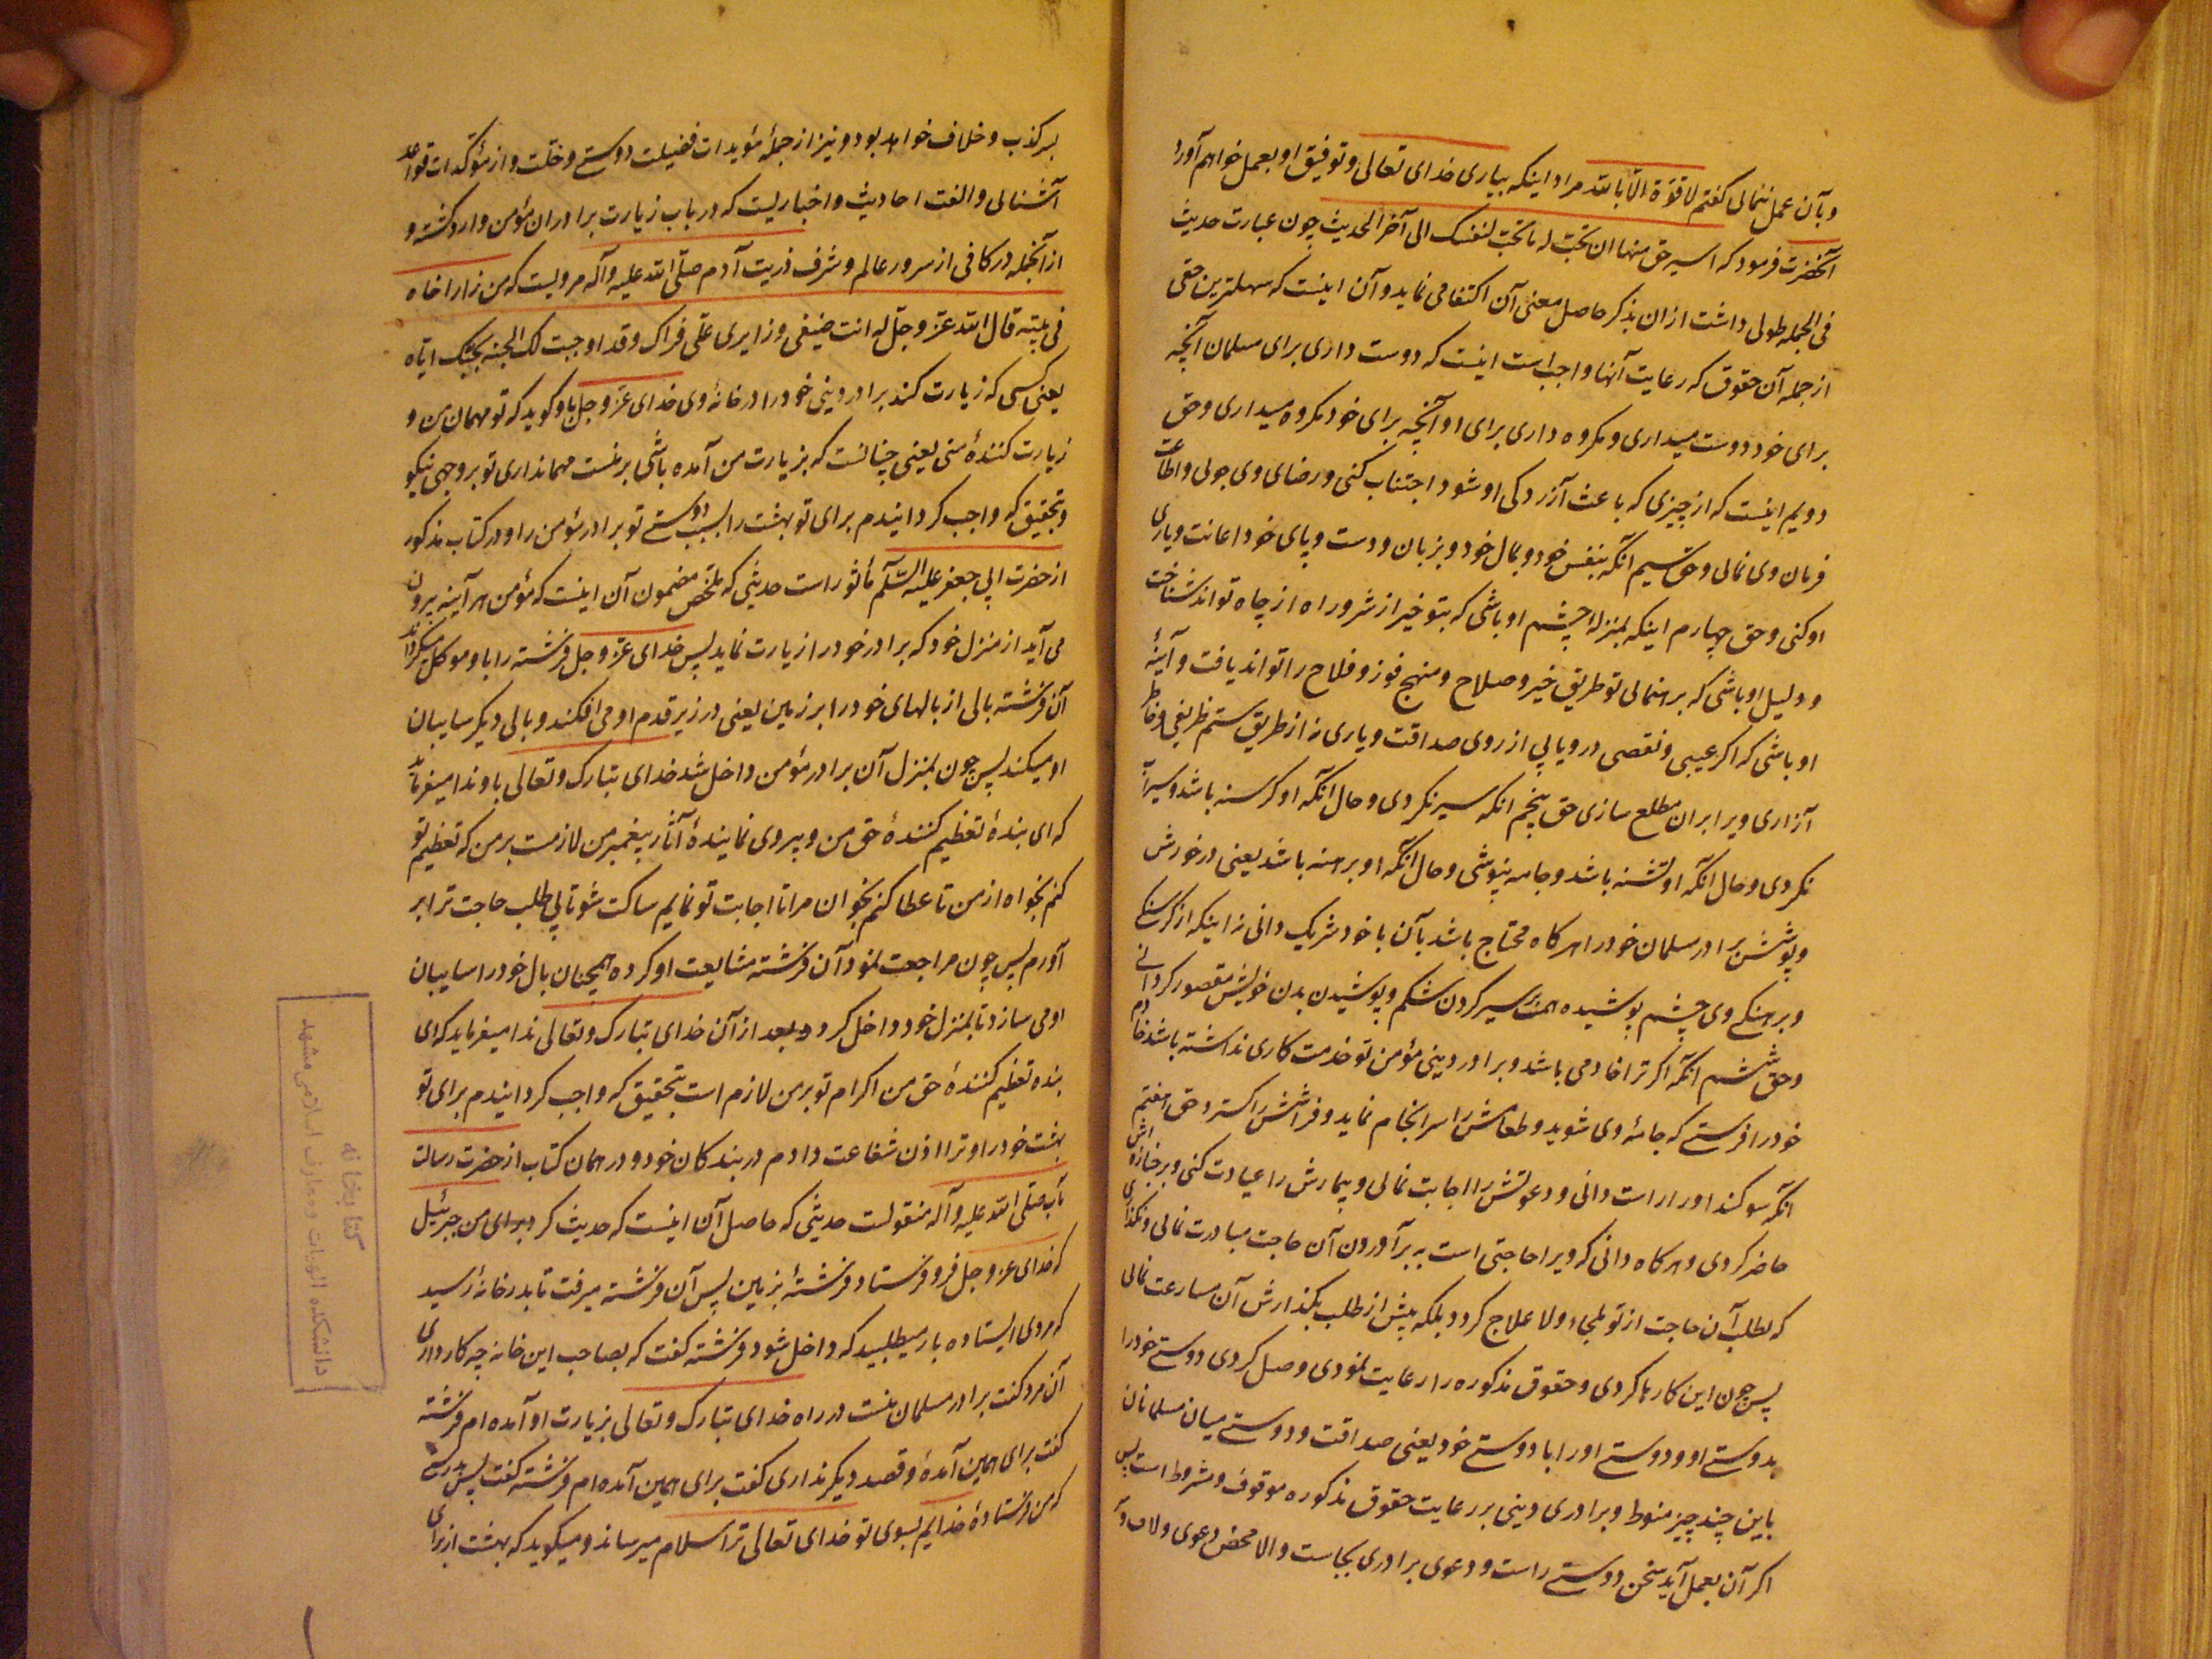 وبآن عمل ننمائی گفتم لا قوّة الّا باللّه مراد اینکه بیاری خدای تعالی و توفیق او بعمل خواهم آورد
آنحضرت فرمود که ایسر حق منها ان تحبّ له ما تحبّ لنفسک الی آخر الحدیث چون عبارت حدیث
فی الجمله طولی داشت ازان بذکر حاصل معنی آن اکتفا می نماید و آن اینست که سهلترین حقی
از جمله آن حقوق که رعایت آنها واجب است اینست که دوست داری برای مسلمان آنچه
برای خود دوست میداری و مکروه داری برای او آنچه برای خود مکروه میداری و حق
دویم اینست که از چیزی که باعث آزردکی او شود اجتناب کنی و رضای وی جوئی و اطاعت
فرمان وی نمائی و حق سیم انکه بنفس خود و بمال خود و بزبان و دست و پای خود اعانت و یاری
او کنی و حق چهارم اینکه بمنزلهٔ چشم او باشی که بتو خیر از شر و راه از چاه تواند شناخت
و دلیل او باشی که برهنمائی تو طریق خیر و صلاح و منهج فوز و فلاح را تواند یافت و آینهٔ
او باشی که اکر عیبی و نقصی در و یابی از روی صداقت و یاری نه از طریق ستم ظریفی و خاطر
آزاری ویرا بران مطلع سازی حق پنجم انکه سیر نکردی و حال آنکه او کرسنه باشد و سیراب
نکردی و حال آنکه او تشنه باشد و جامه نپوشی و حال آنکه او برهنه باشد یعنی در خورش
و پوشش برادر مسلمان خود را هر کاه محتاج باشد بآن با خود شریک دانی نه اینکه از کرسنکے
و برهنکے وی چشم پوشیده همت سیر کردن شکم و پوشیدن بدن خویش مقصور کردانے
و حق ششم انکه اکر ترا خادمی باشد و برادر دینی مؤمن تو خدمت کاری نداشته باشد خادم
خود را فرستے که جامهٔ وی شوید و طعامش را سرانجام نماید و فراشش را کسترد و حق هفتم
انکه سوکند او را راست دانی و دعوتش را اجابت نمائی و بیمارش را عیادت کنی و بر جنازه اش
حاضر کردی و هر کاه دانی که ویرا حاجتی است به برآوردن آن حاجت مبادرت نمائی و نکذاری
که بطلب آن حاجت از تو ملجاء و لا علاج کردد بلکه پیش از طلب بکذارش آن مسارعت نمائی
پس چون این کارها کردی و حقوق مذکوره را رعایت نمودی وصل کردی دوستے خود را
بدوستے او و دوستے او را با دوستے خود یعنی صداقت و دوستے میان مسلمانان
باین چند چیز منوط و برادری دینی بر رعایت حقوق مذکوره موقوف و مشروط است پس
اکر آن بعمل آید سخن دوستے راست و دعوی برادری بجاست و الا محض دعوی و لاف و
بر کذب و خلاف خواهد بود و نیز از جملهٔ مؤیدات فضیلت دوستے و خلّت و از مؤکدات قواعد
آشنائی و الفت احادیث و اخباریست که در باب زیارت برادران مؤمن وارد کشته و
از آنجمله در کافی از سرور عالم و شرف ذریت آدم صلّی اللّه علیه و آله مرویست که من زار اخاه
فی بیته قال اللّه عزّ و جلّ له انت ضیفی و زایری علیّ قراک و قد اوجبت لک الجنه بحبّک ایّاه
یعنی کسی که زیارت کند برادر دینی خود را در خانهٔ وی خدای عزّ و جل باو کوید که تو مهمان من و
زیارت کنندهٔ منی یعنی چنانست که بزیارت من آمده باشی برمنست مهمانداری تو بر وجهی نیکو
و بتحقیق که واجب کردانیدم برای تو بهشت را بسبب دوستے تو برادر مؤمن را و در کتاب مذکور
از حضرت ابی جعفر علیه السّلام مأثور است حدیثی که ملخّص مضمون آن اینست که مؤمن هر آینه بیرون
می آید از منزل خود که برادر خود را زیارت نماید پس خدای عزّ و جل فرشته را باو موکل میکرداند
آن فرشته بالی از بالهای خود را بر زمین یعنی در زیر قدم او می افکند و بالی دیکر سایبان
او میکند پس چون بمنزل آن برادر مؤمن داخل شد خدای تبارک و تعالی باو ندا میفرماید
که ای بندهٔ تعظیم کنندهٔ حق من و پیروی نمایندهٔ آثار پیغمبر من لازمست بر من که تعظیم تو
کنم بخواه از من تا عطا کنم بخوان مرا تا اجابت تو نمایم ساکت شو تا بی طلب حاجت ترا بر
آورم پس چون مراجعت نمود آن فرشته مشایعت او کرده همچنان بال خود را سایبان
او می سازد تا بمنزل خود داخل کردد و بعد از آن خدای تبارک و تعالی ندا میفرماید که ای
بنده تعظیم کنندهٔ حق من اکرام تو بر من لازم است بتحقیق که واجب کردانیدم برای تو
بهشت خود را و ترا اذن شفاعت دادم در بندکان خود و در همان کتاب از حضرت رسالت
مآب صلّی اللّه علیه و آله منقولست حدیثی که حاصل آن اینست که حدیث کرد برای من جبرئیل
که خدای عز و جل فرو فرستاد فرشتهٔ بزمین پس آن فرشته میرفت تا بدر خانهٔ رسید
که مردی ایستاده بار میطلبید که داخل شود فرشته کفت که بصاحب این خانه چه کار داری
آن مرد کفت برادر مسلمان منست در راه خدای تبارک و تعالی بزیارت او آمده ام فرشته
کفت برای همین آمدهٔ و قصد دیکر نداری کفت برای همین آمده ام فرشته کفت پس بدرستے
که من فرستادهٔ خدایم بسوی تو خدای تعالی ترا سلام میرساند و میکوید که بهشت از برای
کتابخانه
دانشکده الهیات و معارف اسلامی مشهد